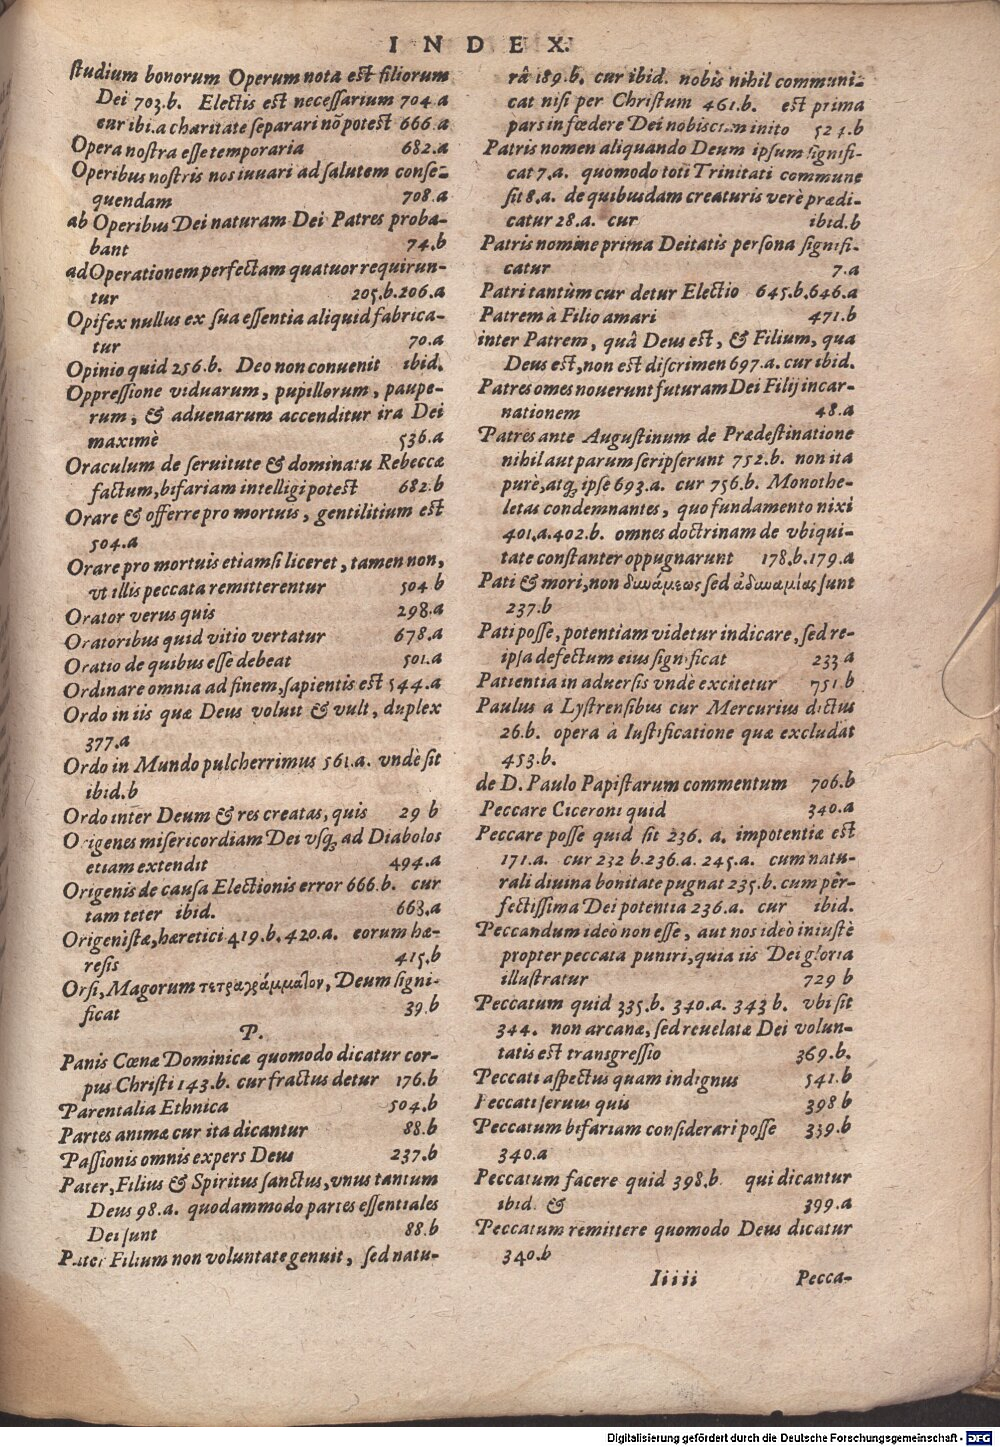 INDEX.
ſtudium bonorum Operum nota eſt filiorum
Dei 703.b. Electis eſt neceſſarium 704.a
cur ibi.a charitate ſeparari nõ poteſt 666.a
Opera noſtra eſſe temporaria 682.a
Operibus noſtris nos iuuari ad ſalutem conſe-
quendam 708.a
ab Operibus Dei naturam Dei Patres proba-
bant 74.b
ad Operationem perfectam quatuor requirun-
tur 205.b.206.a
Opifex nullus ex ſua eſſentia aliquid fabrica-
tur 70.a
Opinio quid 256.b. Deo non conuenit ibid.
Oppreſſione viduarum, pupillorum, paupe-
rum, & aduenarum accenditur ira Dei
maximè 536.a
Oraculum de ſeruitute & dominatu Rebeccæ
factum, bifariam intelligi poteſt 682.b
Orare & offerre pro mortuis, gentilitium eſt
504.a
Orare pro mortuis etiamſi liceret, tamen non,
vt illis peccata remitterentur 504 b
Orator verus quis 298.a
Oratoribus quid vitio vertatur 678.a
Oratio de quibus eſſe debeat 501.a
Ordinare omnia ad finem, ſapientis eſt 544.a
Ordo in iis quæ Deus voluit & vult, duplex
377.a
Ordo in Mundo pulcherrimus 561.a. vndè ſit
ibid.b
Ordo inter Deum & res creatas, quis 29 b
Origenes miſericordiam Dei vſq; ad Diabolos
etiam extendit 494.a
Origenis de cauſa Electionis error 666.b. cur
tam teter ibid. 663.a
Origeniſtæ, hæretici 419.b. 420.a. eorum hæ-
reſis 415.b
Orſi, Magorum τετραγράμματον, Deum ſigni-
ficat 39.b
P.
Panis Cœnæ Dominicæ quomodo dicatur cor-
pus Chriſti 143.b. cur fractus detur 176.b
Parentalia Ethnica 504.b
Partes animæ cur ita dicantur 88.b
Paſſionis omnis expers Deus 237.b
Pater, Filius & Spiritus ſanctus, vnus tantum
Deus 98.a. quodammodo partes eſſentiales
Dei ſunt 88.b
Pater Filium non voluntate genuit, ſed natu-
râ 189.b. cur ibid. nobis nihil communi-
cat niſi per Chriſtum 461.b. eſt prima
pars in fœdere Dei nobiscum inito 524.b
Patris nomen aliquando Deum ipſum ſignifi-
cat 7.a. quomodo toti Trinitati commune
ſit 8.a. de quibuſdam creaturis verè prædi-
catur 28.a. cur ibid.b
Patris nomine prima Deitatis perſona ſignifi-
catur 7.a
Patri tantùm cur detur Electio 645.b.646.a
Patrem à Filio amari 471.b
inter Patrem, quâ Deus eſt, & Filium, qua
Deus eſt, non eſt diſcrimen 697.a. cur ibid.
Patres omes nouerunt futuram Dei Filij incar-
nationem 48.a
Patres ante Auguſtinum de Prædeſtinatione
nihil aut parum ſcripſerunt 752.b. non ita
purè, atq; ipſe 693.a. cur 756.b. Monothe-
letas condemnantes, quo fundamento nixi
401.a.402.b. omnes doctrinam de vbiqui-
tate conſtanter oppugnarunt 178.b.179.a
Pati & mori, non δυνάμεως ſed ἀδυναμίας ſunt
237.b
Pati poſſe, potentiam videtur indicare, ſed re-
ipſa defectum eius ſignificat 233 a
Patientia in aduerſis vndè excitetur 751.b
Paulus a Lyſtrenſibus cur Mercurius dictus
26.b. opera à Iuſtificatione quæ excludat
453.b.
de D. Paulo Papiſtarum commentum 706.b
Peccare Ciceroni quid 340.a
Peccare poſſe quid ſit 236. a. impotentiæ eſt
171.a. cur 232 b.236.a. 245.a. cum natu-
rali diuina bonitate pugnat 235.b. cum per-
fectiſſima Dei potentia 236.a. cur ibid.
Peccandum ideò non eſſe, aut nos ideò iniuſtè
propter peccata puniri, quia iis Dei gloria
illuſtratur 729 b
Peccatum quid 335.b. 340.a. 343 b. vbi ſit
344. non arcanæ, ſed reuelatæ Dei volun-
tatis eſt transgreſſio 369.b.
Peccati aſpectus quam indignus 541.b
Peccati ſeruus quis 398 b
Peccatum bifariam conſiderari poſſe 339.b
340.a
Peccatum facere quid 398.b. qui dicantur
ibid. & 399.a
Peccatum remittere quomodo Deus dicatur
340.b
Iiiii Pecca-
Digitalisierung gefördert durch die Deutsche Forschungsgemeinschaft - DFG